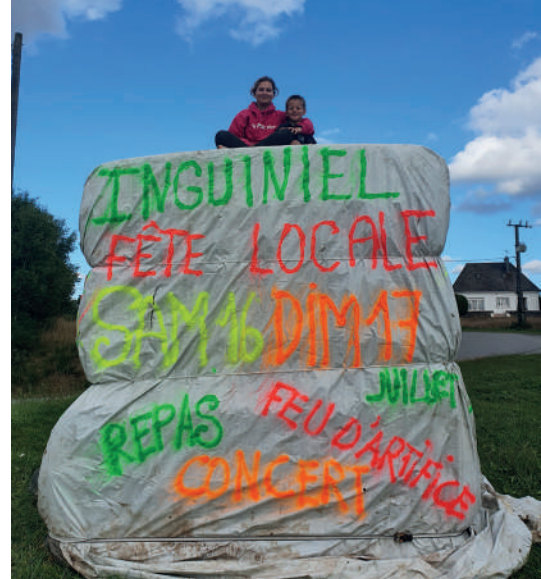 INGUINIEL
FÊTE LOCALE
SAM 16 DIM 17
JUILLET
REPAS FEU D'ARTIFICE
CONCERT